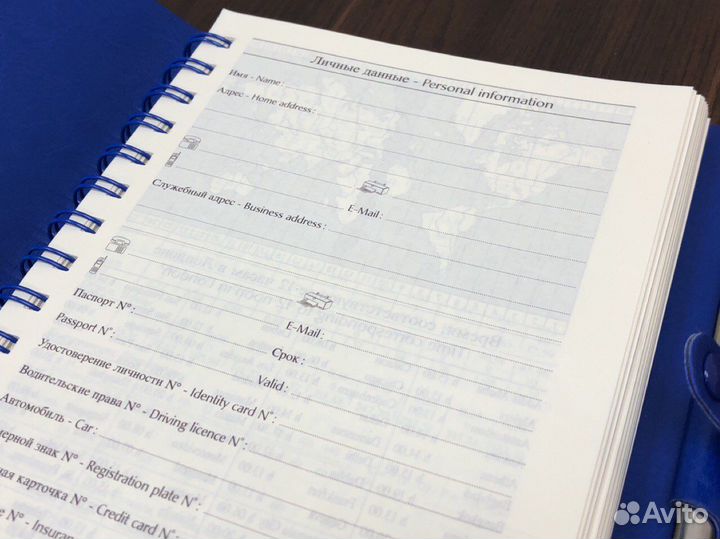 Личные данные - Personal information
Имя - Name:
Адрес - Home address:
E-Mail:
Служебный адрес - Business address:
E-Mail:
Паспорт N°:
Срок:
Passport N°:
Valid:
Удостоверение личности N° - Identity card N°:
Водительские права N° - Driving licence N°:
Автомобиль - Car:
знак N° - Registration plate N°:
карточка N° - Credit card N°:
N° -
Avito